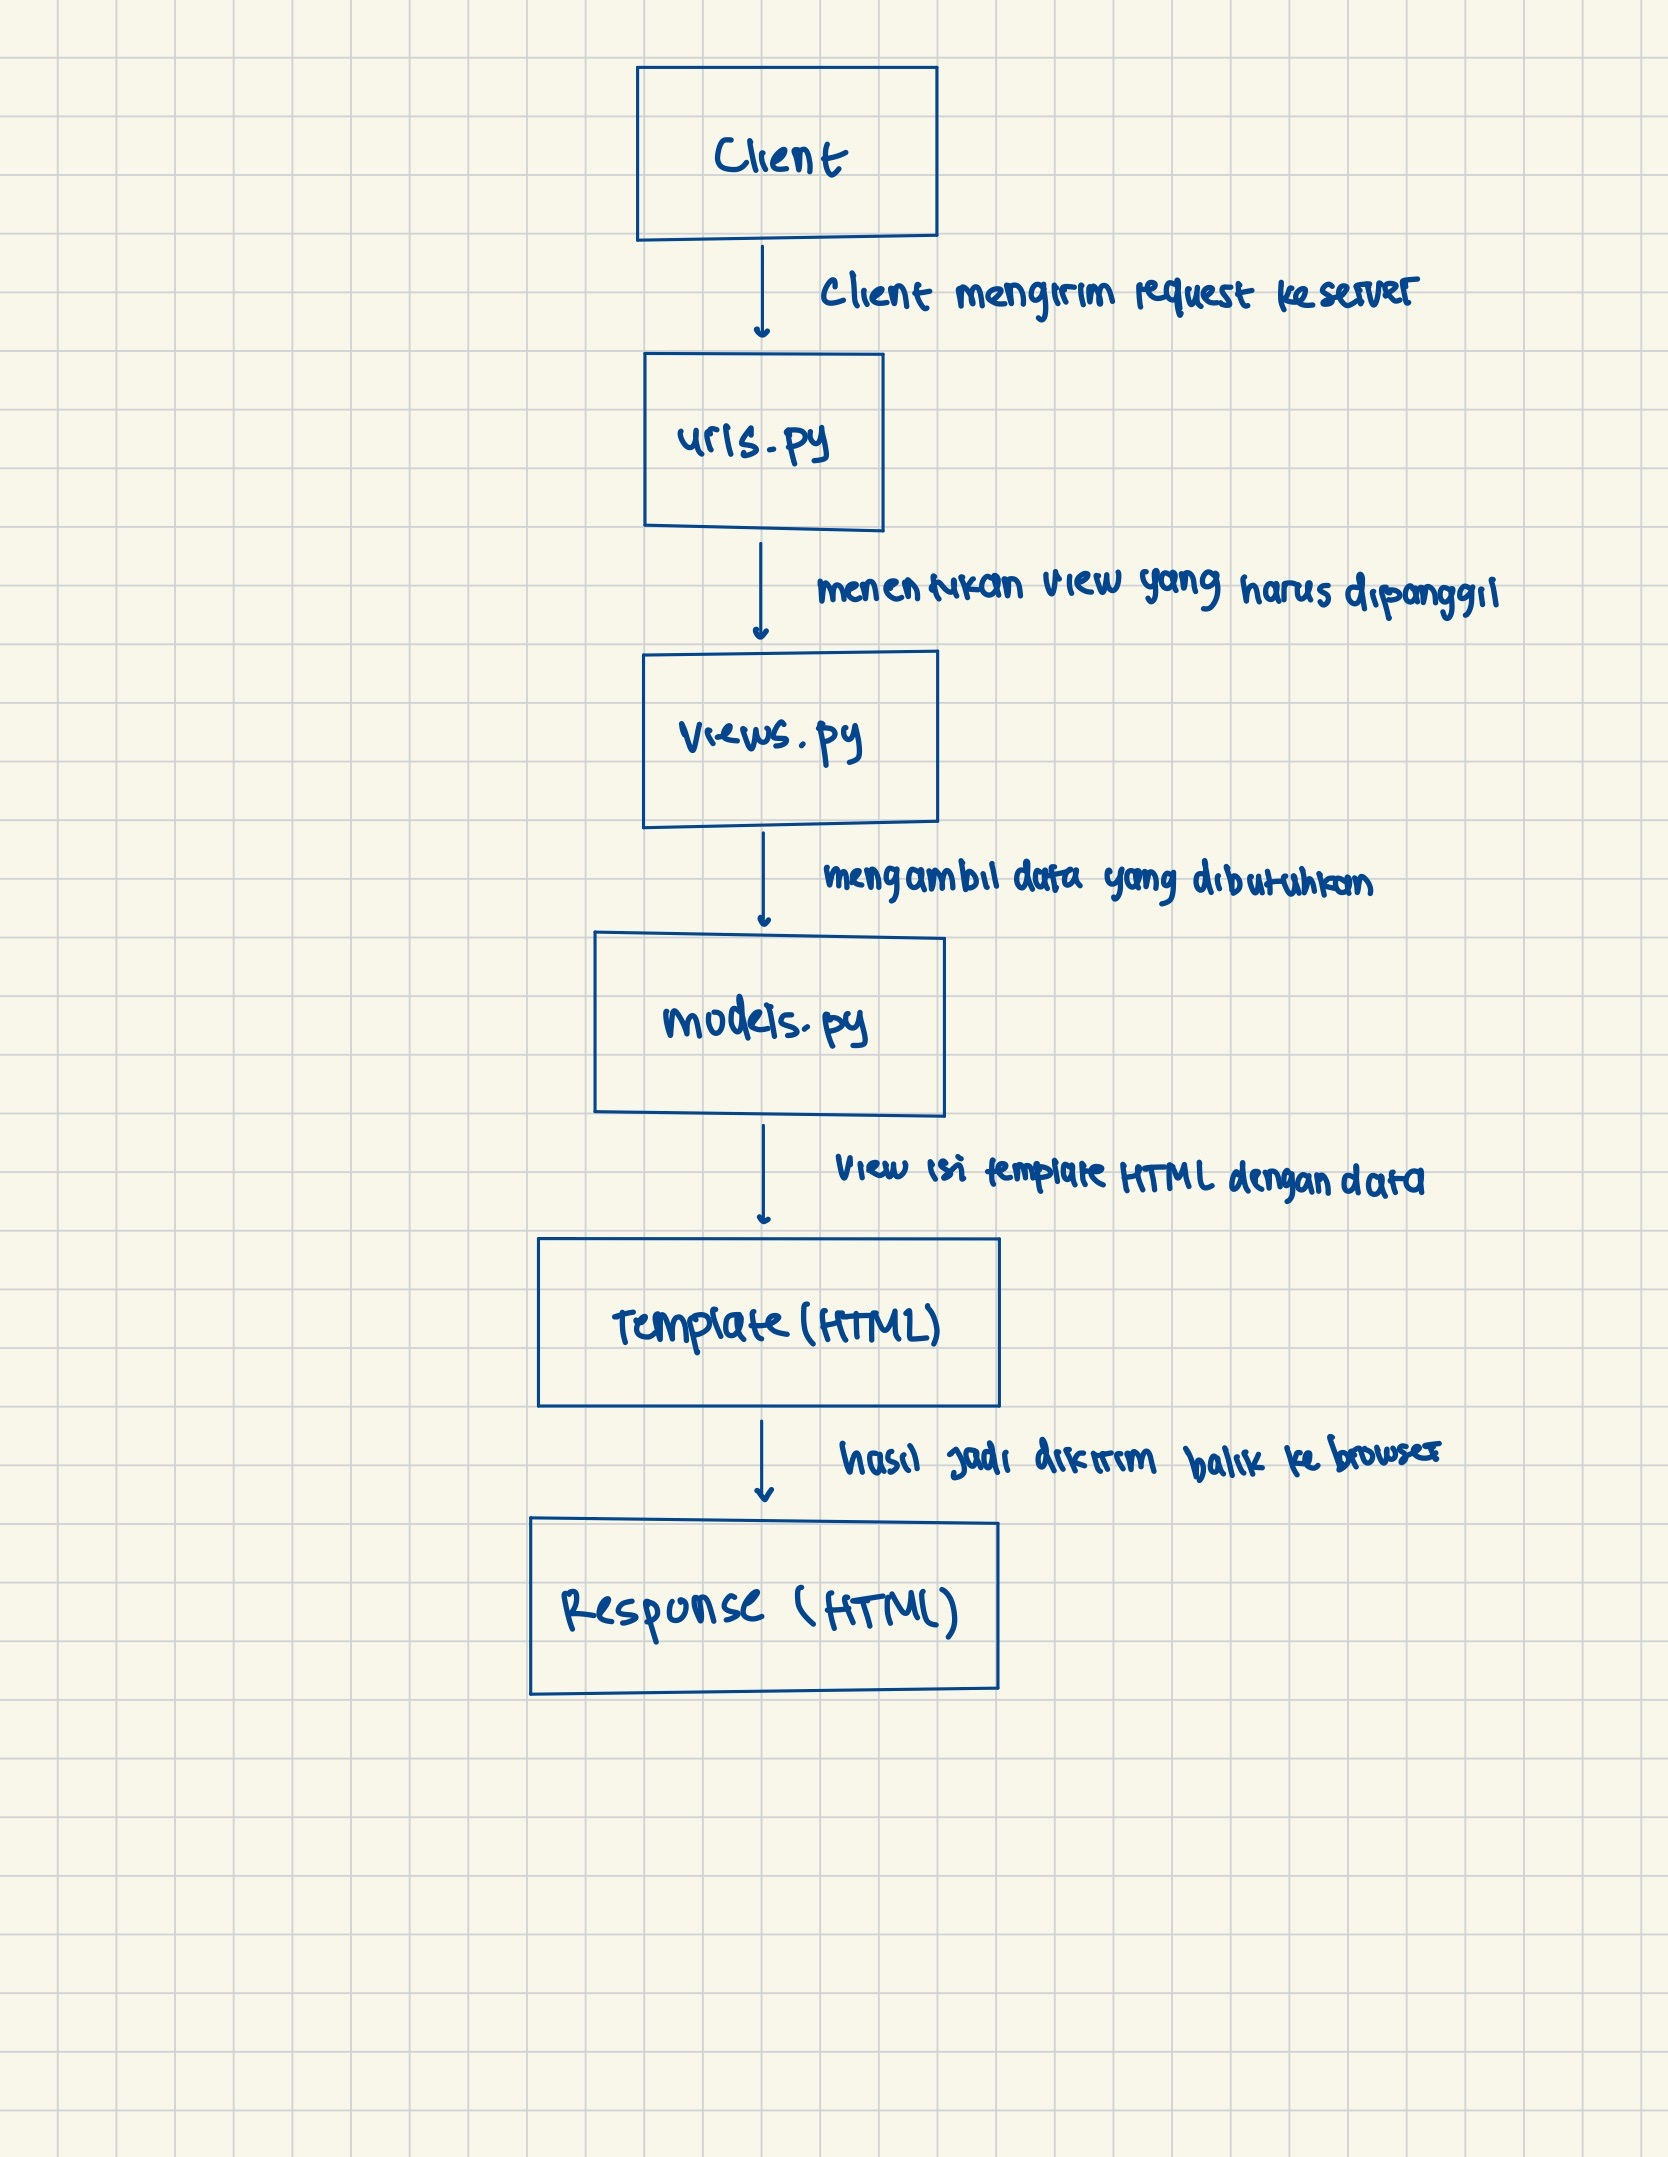 Client
Client mengirim request ke server
urls.py
menentukan view yang harus dipanggil
views.py
mengambil data yang dibutuhkan
models.py
view isi template HTML dengan data
Template (HTML)
hasil jadi dikirim balik ke browser
Response (HTML)